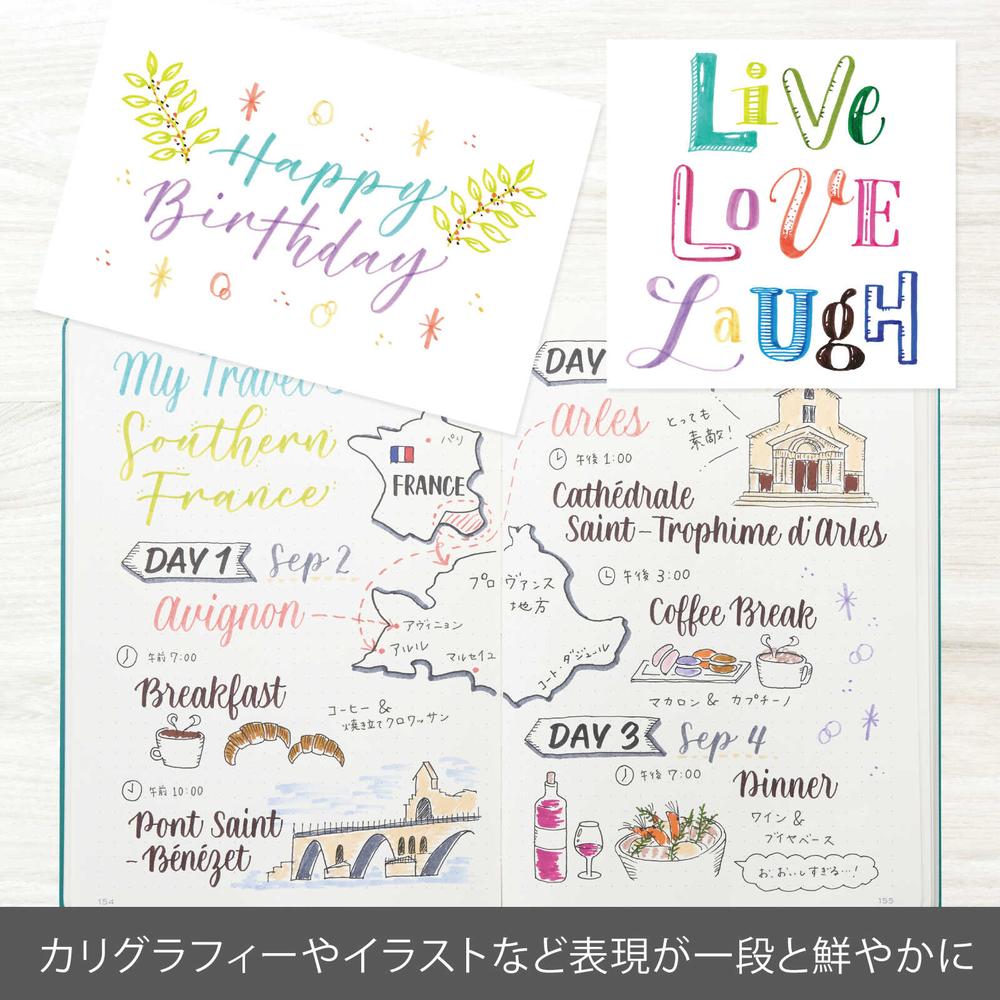 Happy
Birthday
Live
LoVE
LaUgH
My Travel
Southern
France
パリ
FRANCE
DAY 1 Sep 2
avignon
午前 7:00
Breakfast
コーヒー &
焼き立てクロワッサン
午前 10:00
Pont Saint
-Bénézet
プロヴァンス
地方
アヴィニョン
アルル
マルセイユ
コート・ダジュール
154
DAY
arles
とっても
素敵!
午後 1:00
Cathédrale
Saint-Trophime d'Arles
午後 3:00
Coffee Break
マカロン & カプチーノ
DAY 3 Sep 4
午後 7:00
Dinner
ワイン &
ブイヤベース
お、おいしすぎる…!
155
カリグラフィーやイラストなど表現が一段と鮮やかに